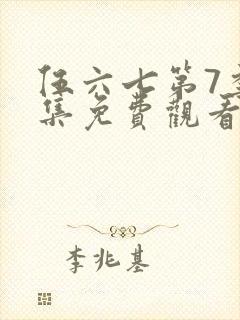 伍六七第7季
集免費觀看
李兆基